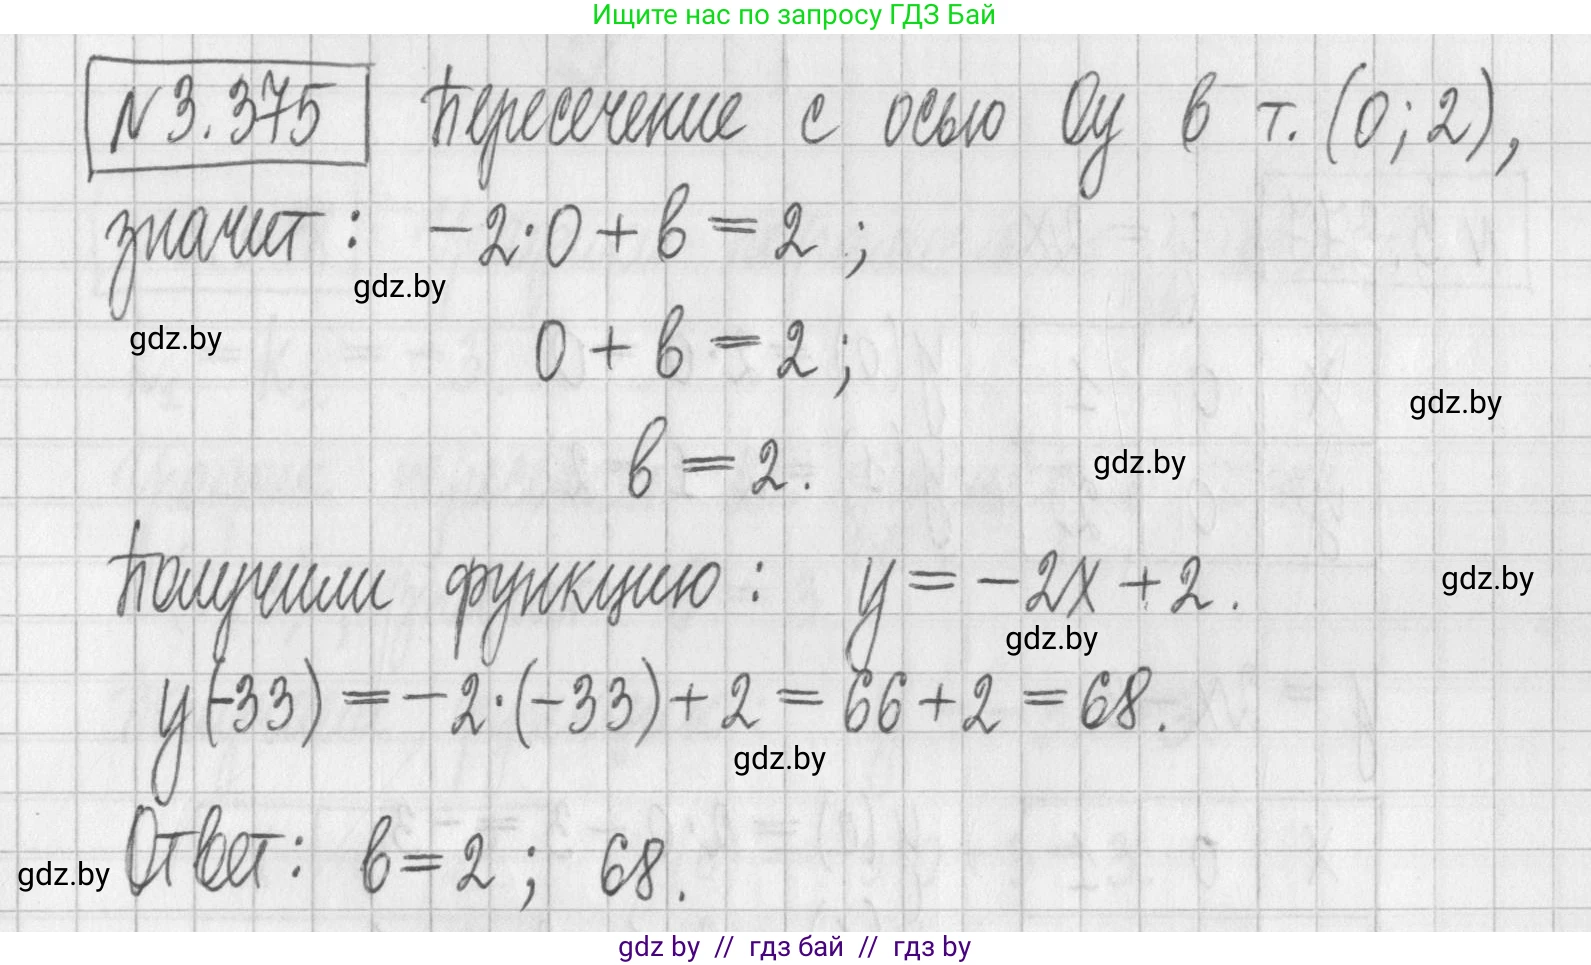 Ищите нас по запросу ГДЗ Бай
N 3.375 Пересечение с осью Oy в т. (0; 2),
значит: -2·0 + b = 2;
gdz.by
gdz.by
0 + b = 2;
gdz.by
b = 2.
gdz.by
Получили функцию: y = -2x + 2.
gdz.by
gdz.by
y(-33) = -2·(-33) + 2 = 66 + 2 = 68.
gdz.by
Ответ: b = 2; 68.
gdz.by
gdz by // гдз бай // гдз by